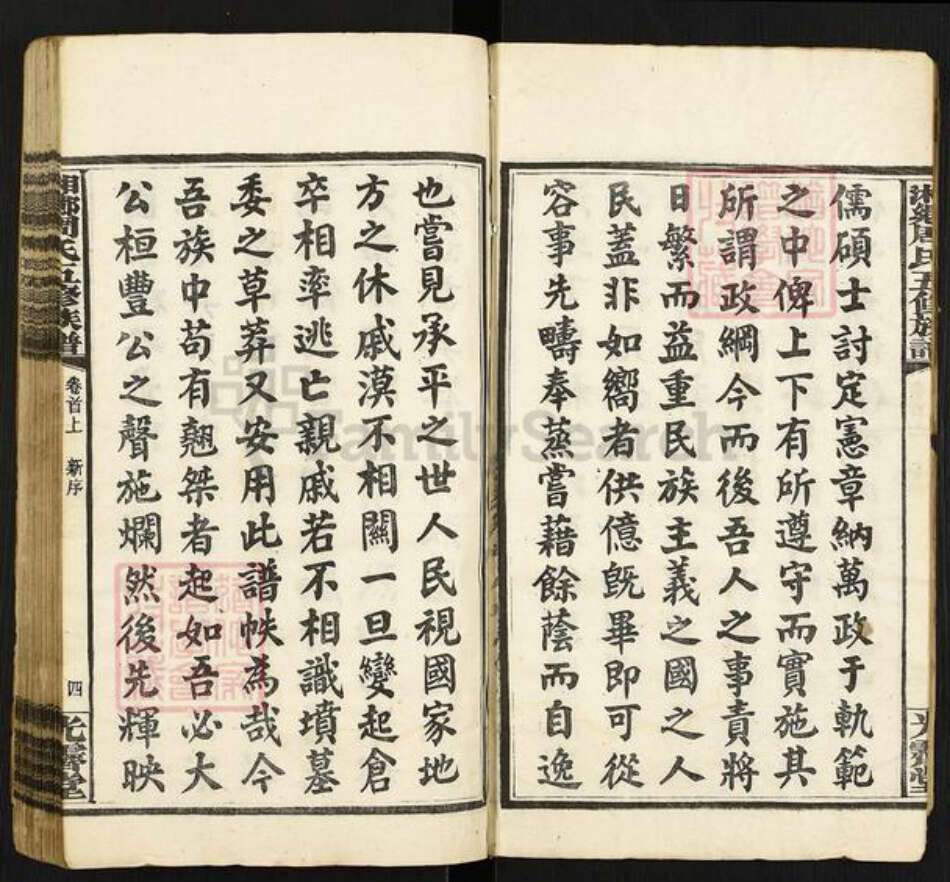 儒碩士討定憲章納萬政于軌範
之中俾上下有所遵守而實施其
所謂政綱今而後吾人之事責將
日繁而益重民族主義之國之人
民蓋非如嚮者供億既畢即可從
容事先疇奉蒸嘗藉餘蔭而自逸
也嘗見承平之世人民視國家地
方之休戚漠不相關一旦變起倉
卒相率逃亡親戚若不相識墳墓
委之草莽又安用此譜帙為哉今
吾族中苟有翹桀者起如吾必大
公桓豐公之聲施爛然後先輝映
湘鄉周氏五修族譜
卷首上 新序
四
光霽堂
FamilySearch